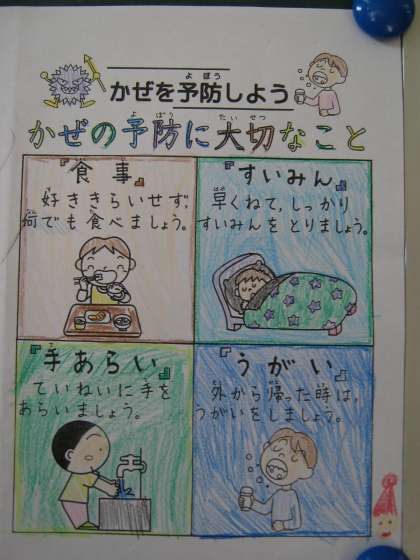 かぜを予防しよう
かぜの予防に大切なこと
『食事』
好ききらいせず、
何でも食べましょう。
『すいみん』
早くねて、しっかり
すいみんをとりましょう。
『手あらい』
ていねいに手を
あらいましょう。
『うがい』
外から帰った時は、
うがいをしましょう。